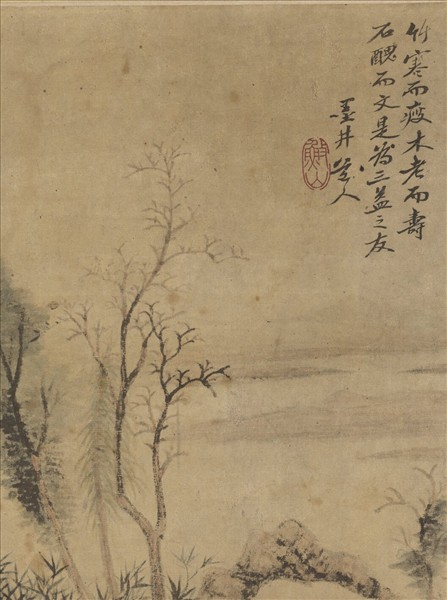 竹寒而瘦木老而壽
石醜而文是為三益之友
墨井道人